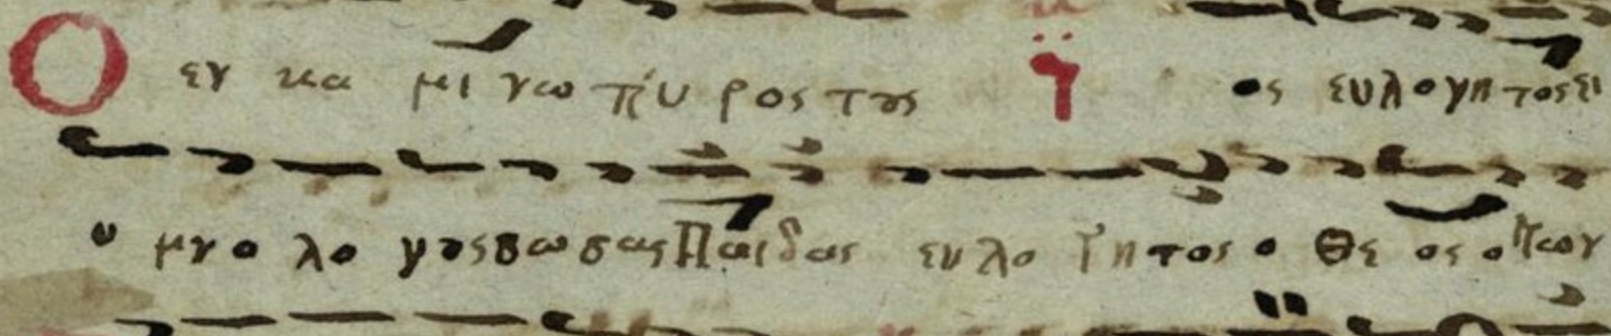 Ο εν κα μι νω πυ ρος τους ος ευλογητος ει
υ μνο λο γους σωσας Παιδας ευλο γητος ο Θε ος ο των